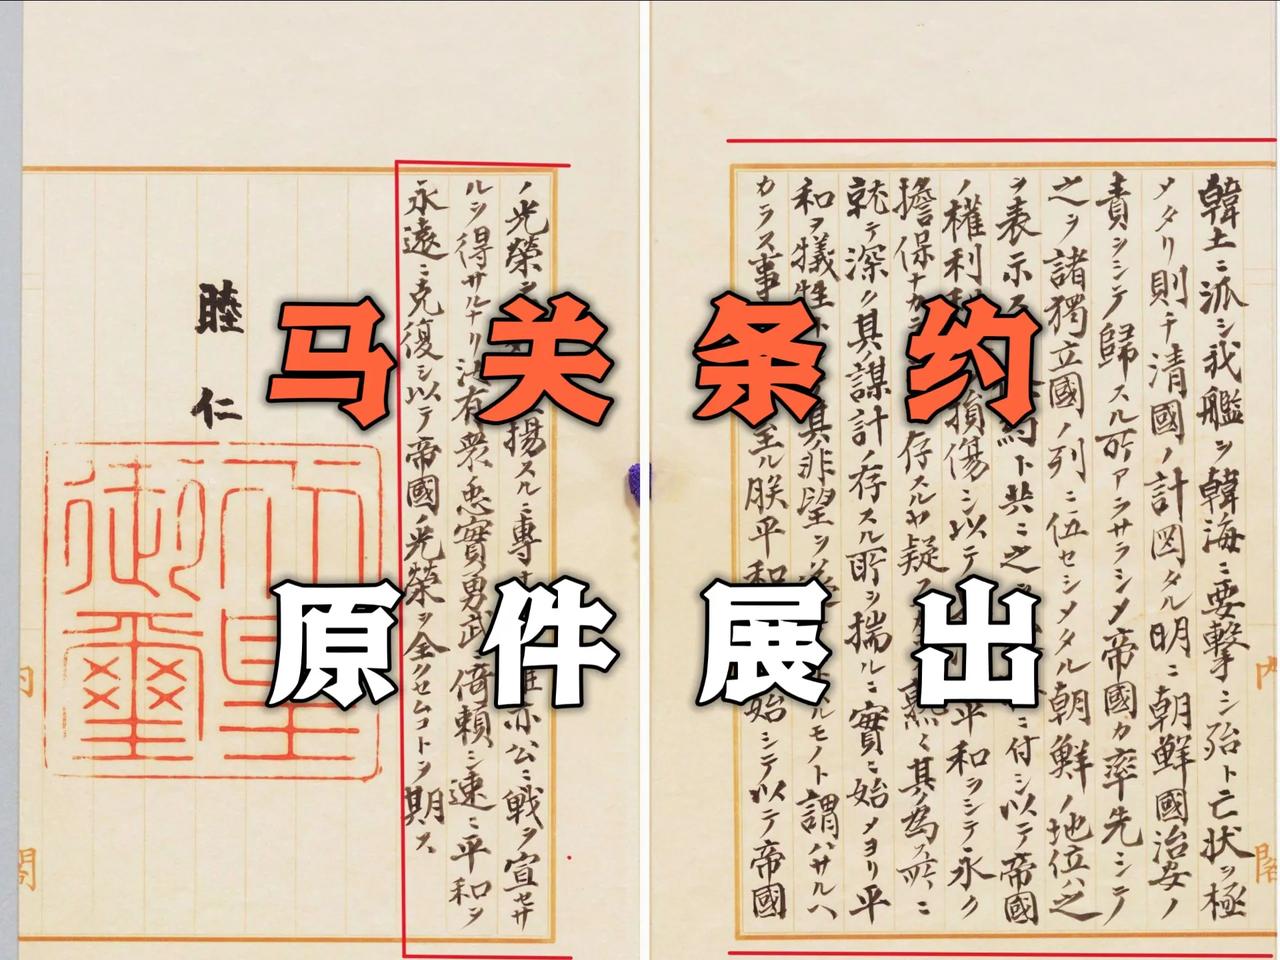 马关条约
原件展出
韓土ニ派シ我艦ヲ韓海ニ要撃シ殆ト亡状ヲ極
メタリ則チ清國ノ計圖タル明ニ朝鮮國治安ノ
責ヲシテ歸スル所アラサラシメ帝國カ率先シテ
之ヲ諸獨立國ノ列ニ伍セシメタル朝鮮ノ地位ハ之
ヲ表示ス 約ト共ニ之 ニ付シ以テ帝國
ノ權利 損傷シ以テ 平和ヲシテ永ク
擔保ナカ 存スルヤ疑 熟々其ノ爲ス所ニ
就テ深ク其ノ謀計ノ存スル所ヲ揣ルニ實ニ始メヨリ平
和ヲ犠牲ト 其ノ非望ヲ遂 ルモノト謂ハサルヘ
カラス事 至ル朕平和 始シテ以テ帝國
ノ光榮 揚スルニ專 雖亦公ニ戰ヲ宣セサ
ルヲ得サルナリ汝有衆ノ忠實勇武ニ倚頼シ速ニ平和ヲ
永遠ニ克復シ以テ帝國ノ光榮ヲ全クセムコトヲ期ス
睦仁
天皇御璽
内閣